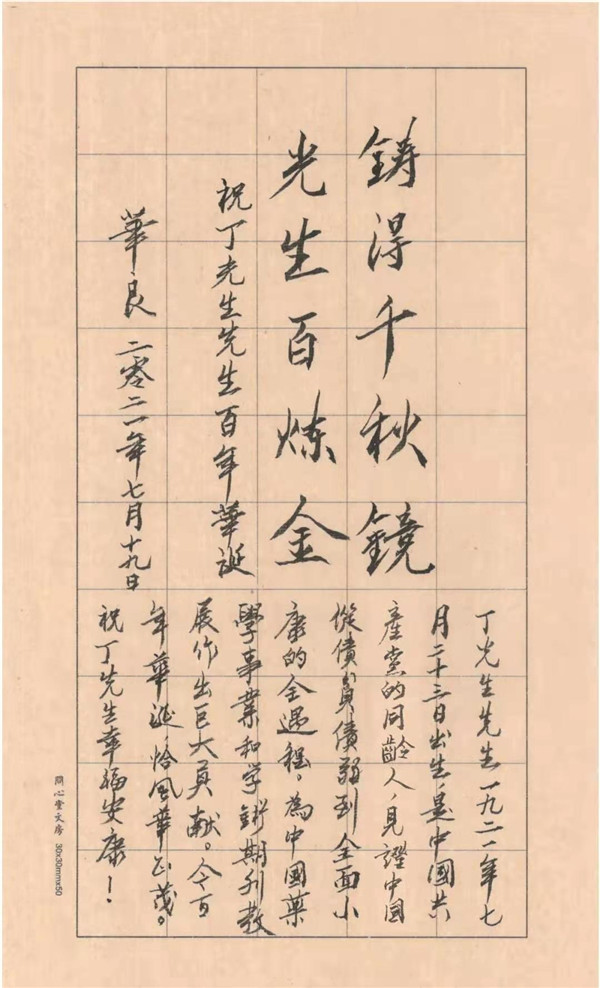 鋳得千秋鏡
光生百炼金
祝丁光生先生百年華誕
華良 二零二一年七月十九日
丁光生先生一九二一年七
月二十三日出生,是中國共
產党的同齡人,見證中國
從積貧積弱到全面小
康的全過程。為中國藥
學事業和学術期刊發
展作出巨大貢献。今百
年華诞,恰風華正茂。
祝丁先生幸福安康!
問心堂文房 30x30mmx50